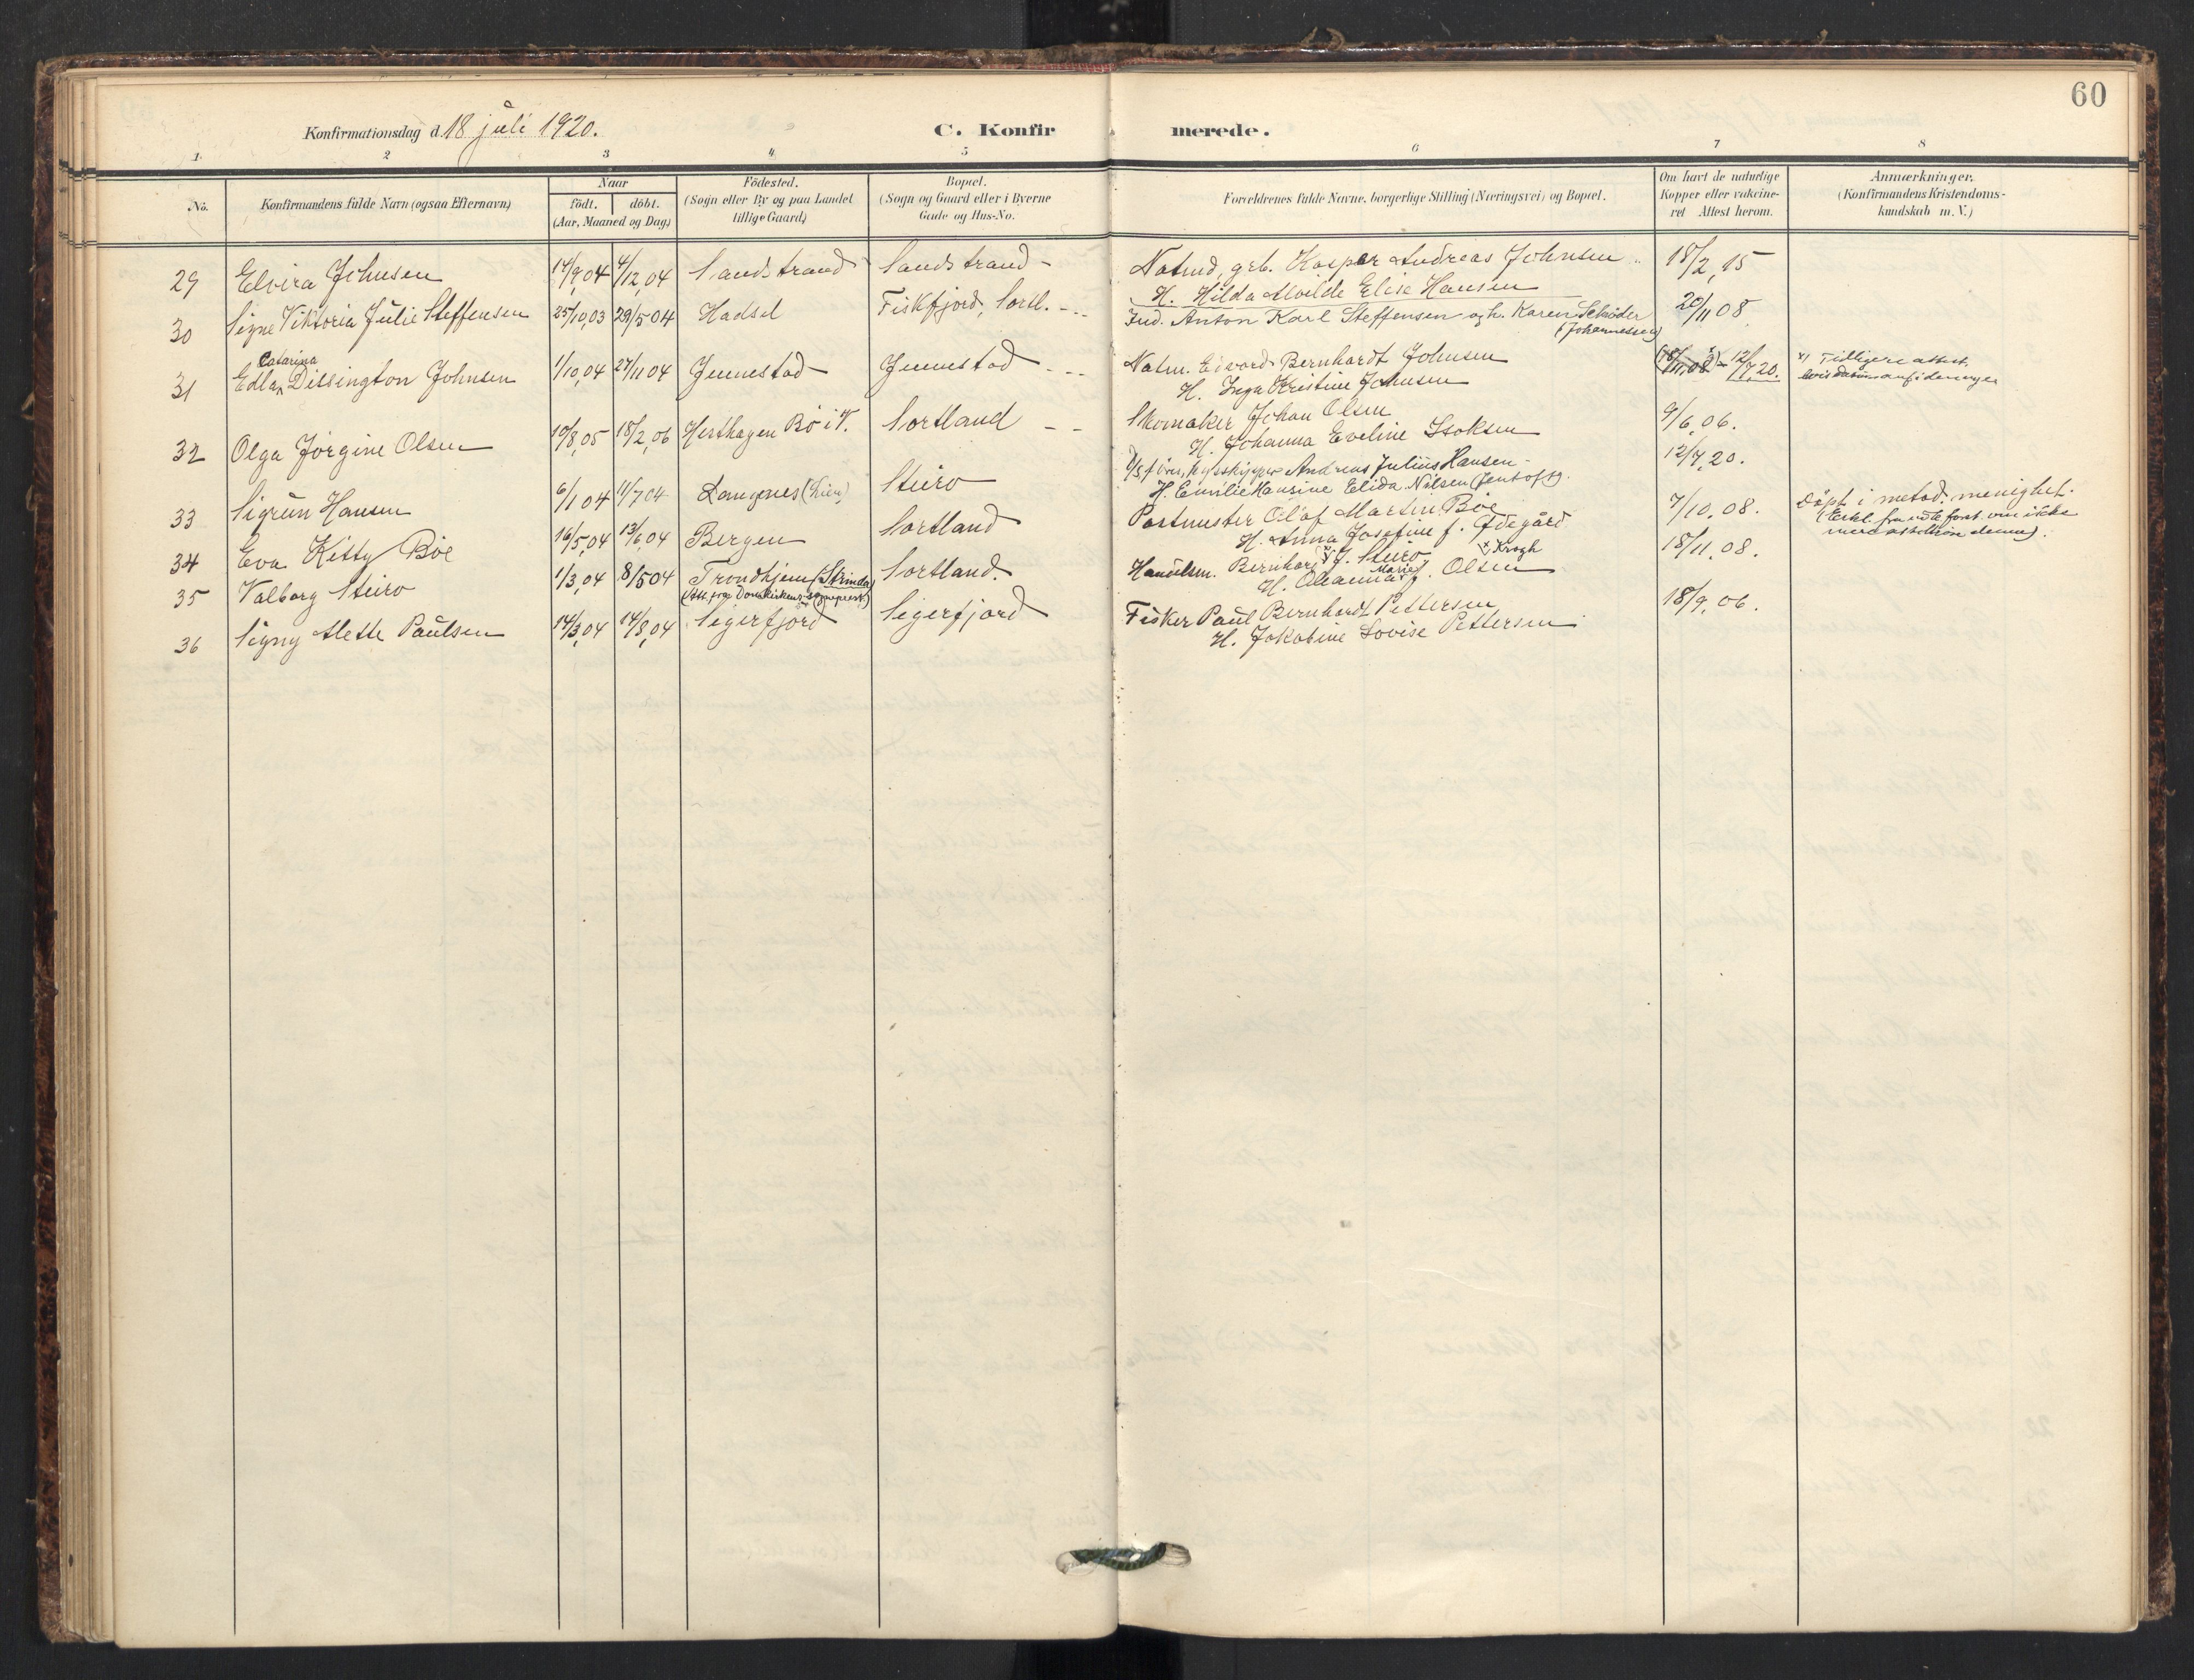 60
Konfirmationsdag d. 18 juli 1920.
C. Konfirmerede.
1 2 3 4 5 6 7 8
No.
Konfirmandens fulde Navn (ogsaa Efternavn)
Naar
födt. döbt.
(Aar, Maaned og Dag)
Födested.
(Sogn eller By og paa Landet
tillige Gaard)
Bopæl.
(Sogn og Gaard eller i Byerne
Gade og Hus-No.
Forældrenes fulde Navne, borgerlige Stilling (Næringsvei) og Bopæl.
Om havt de naturlige
Kopper eller vakcine-
ret Attest herom.
Anmærkninger.
(Konfirmandens Kristendoms-
kundskab m.V.)
29 Elvira Johnsen 14/9,04 4/12,04 Sandstrand Sandstrand - Natmd, grb. Kasper Andreas Johnsen 18/2,15
H. Hilda Alvilde Elise Hansen
30 Signe Viktoria Julie Steffensen 25/10,03 29/5 04 Hadsel Fiskfjord, Sortl. - Ind. Anton Karl Steffensen og h. Karen Schöder 20/11 08
(Johannessen)
31 Edla Catarina Dissington Johnsen 1/10,04 27/11 04 Jennestad Jennestad - Natm. Edvard Bernhardt Johnsen (18/11,08 x) - 12/7,20. x) Tidligere attest
H. Inga Kristine Johnsen
32 Olga Jörgine Olsen 10/8,05 18/2,06 Hesthagen Bö i V. Sortland - - Skomaker Johan Olsen 9/6,06.
H. Johanna Eveline Isaksen
33 Sigrun Hansen 6/1 04 11/7 04 Langenes (Lien) Steiro Andreas Julius Hansen 12/7,20.
H. Emilie Hansine Elida Nilsen (Jentoft).
34 Eva Kitty Böe 16/5,04 13/6,04 Bergen Sortland Postmester Olaf Martin Böe 7/10,08. Döpt i metod. menighet.
H. Anna Josefine f. Ødegård
35 Valborg Steiro 1/3,04 8/5 04 Trondhjem (Strinda) Sortland. Handelsm. Bernhard J. Steiro 18/11,08.
(Att. fra Domkirkens sogneprest)
H. Oleanna Marie f. Olsen x) Krogh
36 Signy Alette Paulsen 14/3,04 14/8,04 Sigerfjord Sigerfjord Fisker Paul Bernhardt Pettersen 18/9,06.
H. Jakobine Lovise Pettersen